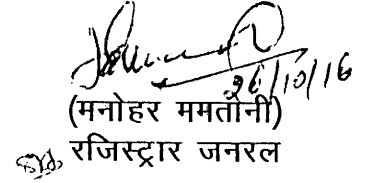 26/10/16
(मनोहर ममतोनी)
रजिस्ट्रार जनरल